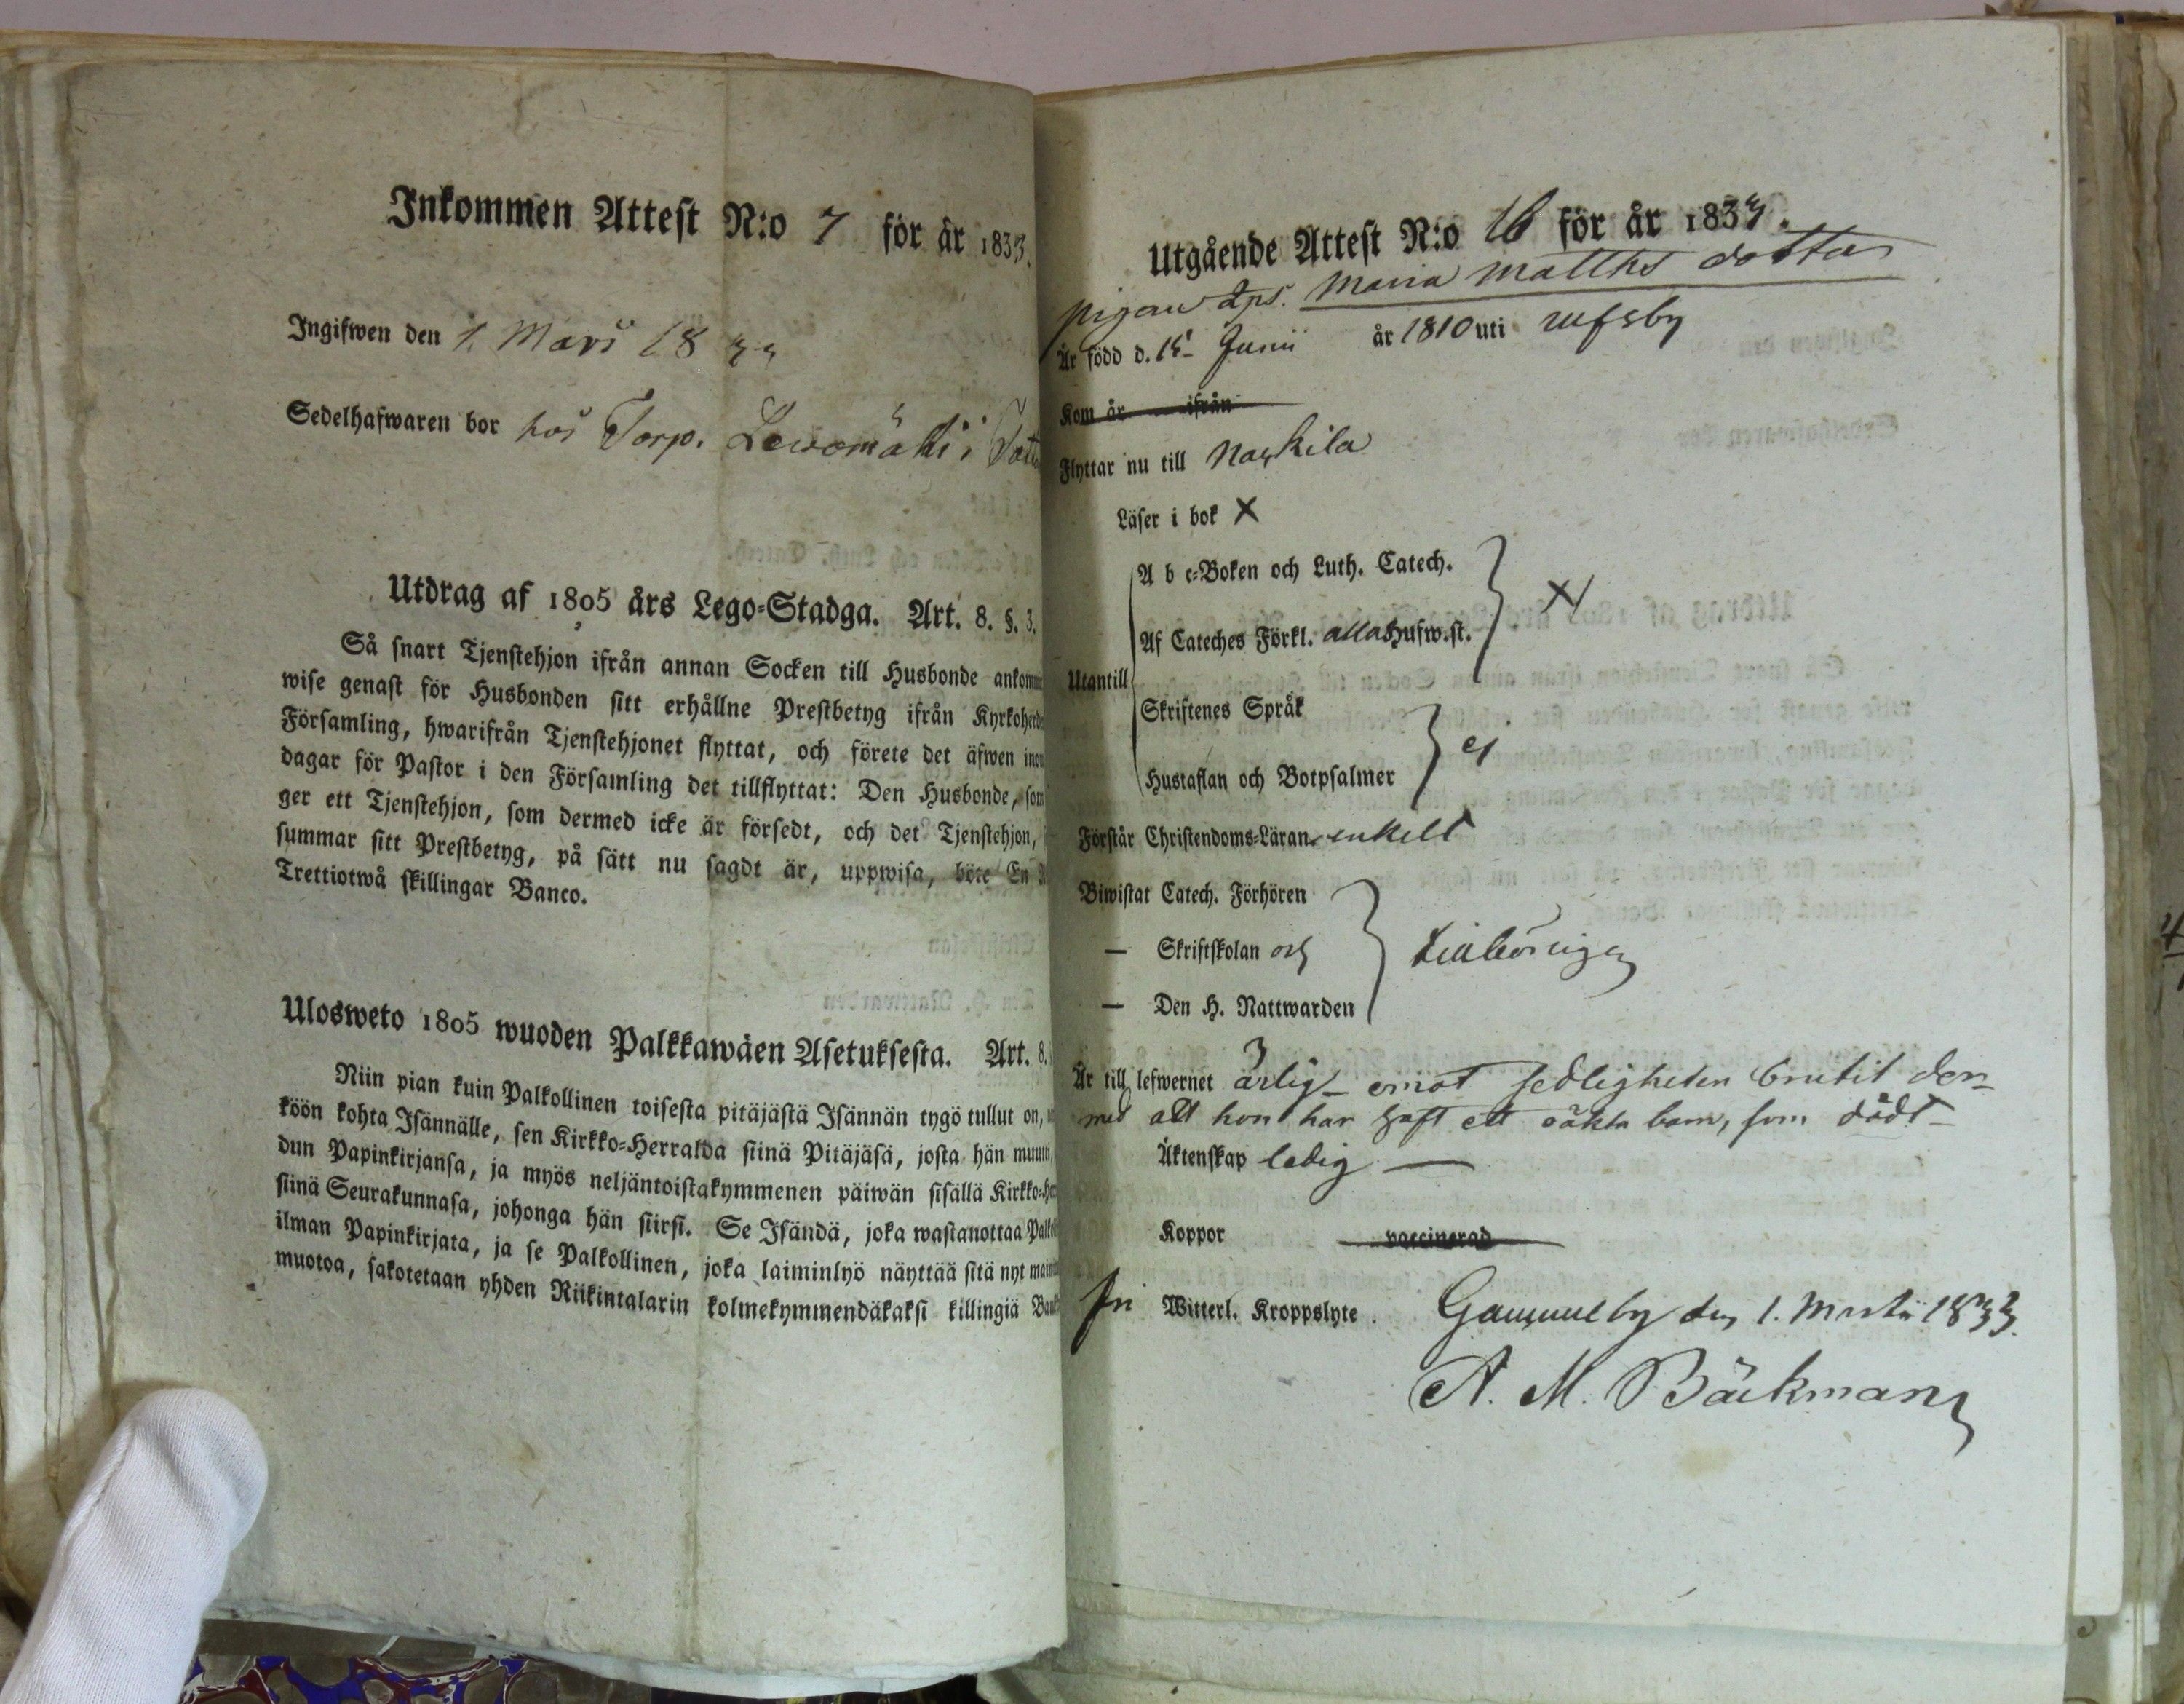 Inkommen Attest N:o 7 för år 1833.
Ingifwen den 1 Mars 1833
Sedelhafwaren bor hos Torp. Lewomäki i
Utdrag af 1805 års Lego-Stadga. Art. 8. §. 3.
Så snart Tjenstehjon ifrån annan Socken till Husbonde
wise genast för Husbonden sitt erhållne Prestbetyg ifrån
Församling, hwarifrån Tjenstehjonet flyttat, och förete det äfwen
dagar för Pastor i den Församling det tillflyttat: Den Husbonde,
ger ett Tjenstehjon, som dermed icke är försedt, och det Tjenstehjon,
summar sitt Prestbetyg, på sätt nu sagdt är, uppwisa, böte En
Trettiotwå skillingar Banco.
Ulosweto 1805 wuoden Palkkawäen Asetuksesta. Art. 8.
Niin pian kuin Palkollinen toisesta pitäjästä Isännän tygö tullut on,
köön kohta Isännälle, sen Kirkko-Herralda siinä Pitäjäsä, josta hän
dun Papinkirjansa, ja myös neljäntoistakymmenen päiwän sisällä
siinä Seurakunnasa, johonga hän siirsi. Se Isändä, joka wastanottaa
ilman Papinkirjata, ja se Palkollinen, joka laiminlyö näyttää sitä nyt
muotoa, sakotetaan yhden Riikintalarin kolmekymmendäkaksi killingiä
Utgående Attest N:o 16 för år 1833.
pigan Maria Matths dotter
Är född d. 15 Junii år 1810 uti Ulfsby
Kom år ifrån
Flyttar nu till Naskila
Läser i bok X
A b c-Boken och Luth. Catech.
X
Af Cateches Förkl. alla Hufw.st.
Utantill
Skriftenes Språk
ej
Hustaflan och Botpsalmer
Förstår Christendoms-Läran enkelt
Biwistat Catech. Förhören
— Skriftskolan och
— Den H. Nattwarden
Är till lefwernet ärlig - emot sedligheten brutit der-
med att hon har haft ett oäkta barn, som dödt -
Äktenskap ledig —
Koppor vaccinerad
fri Witterl. Kroppslyte. Gammelby den 1. Martii 1833.
A. M. Bäckman